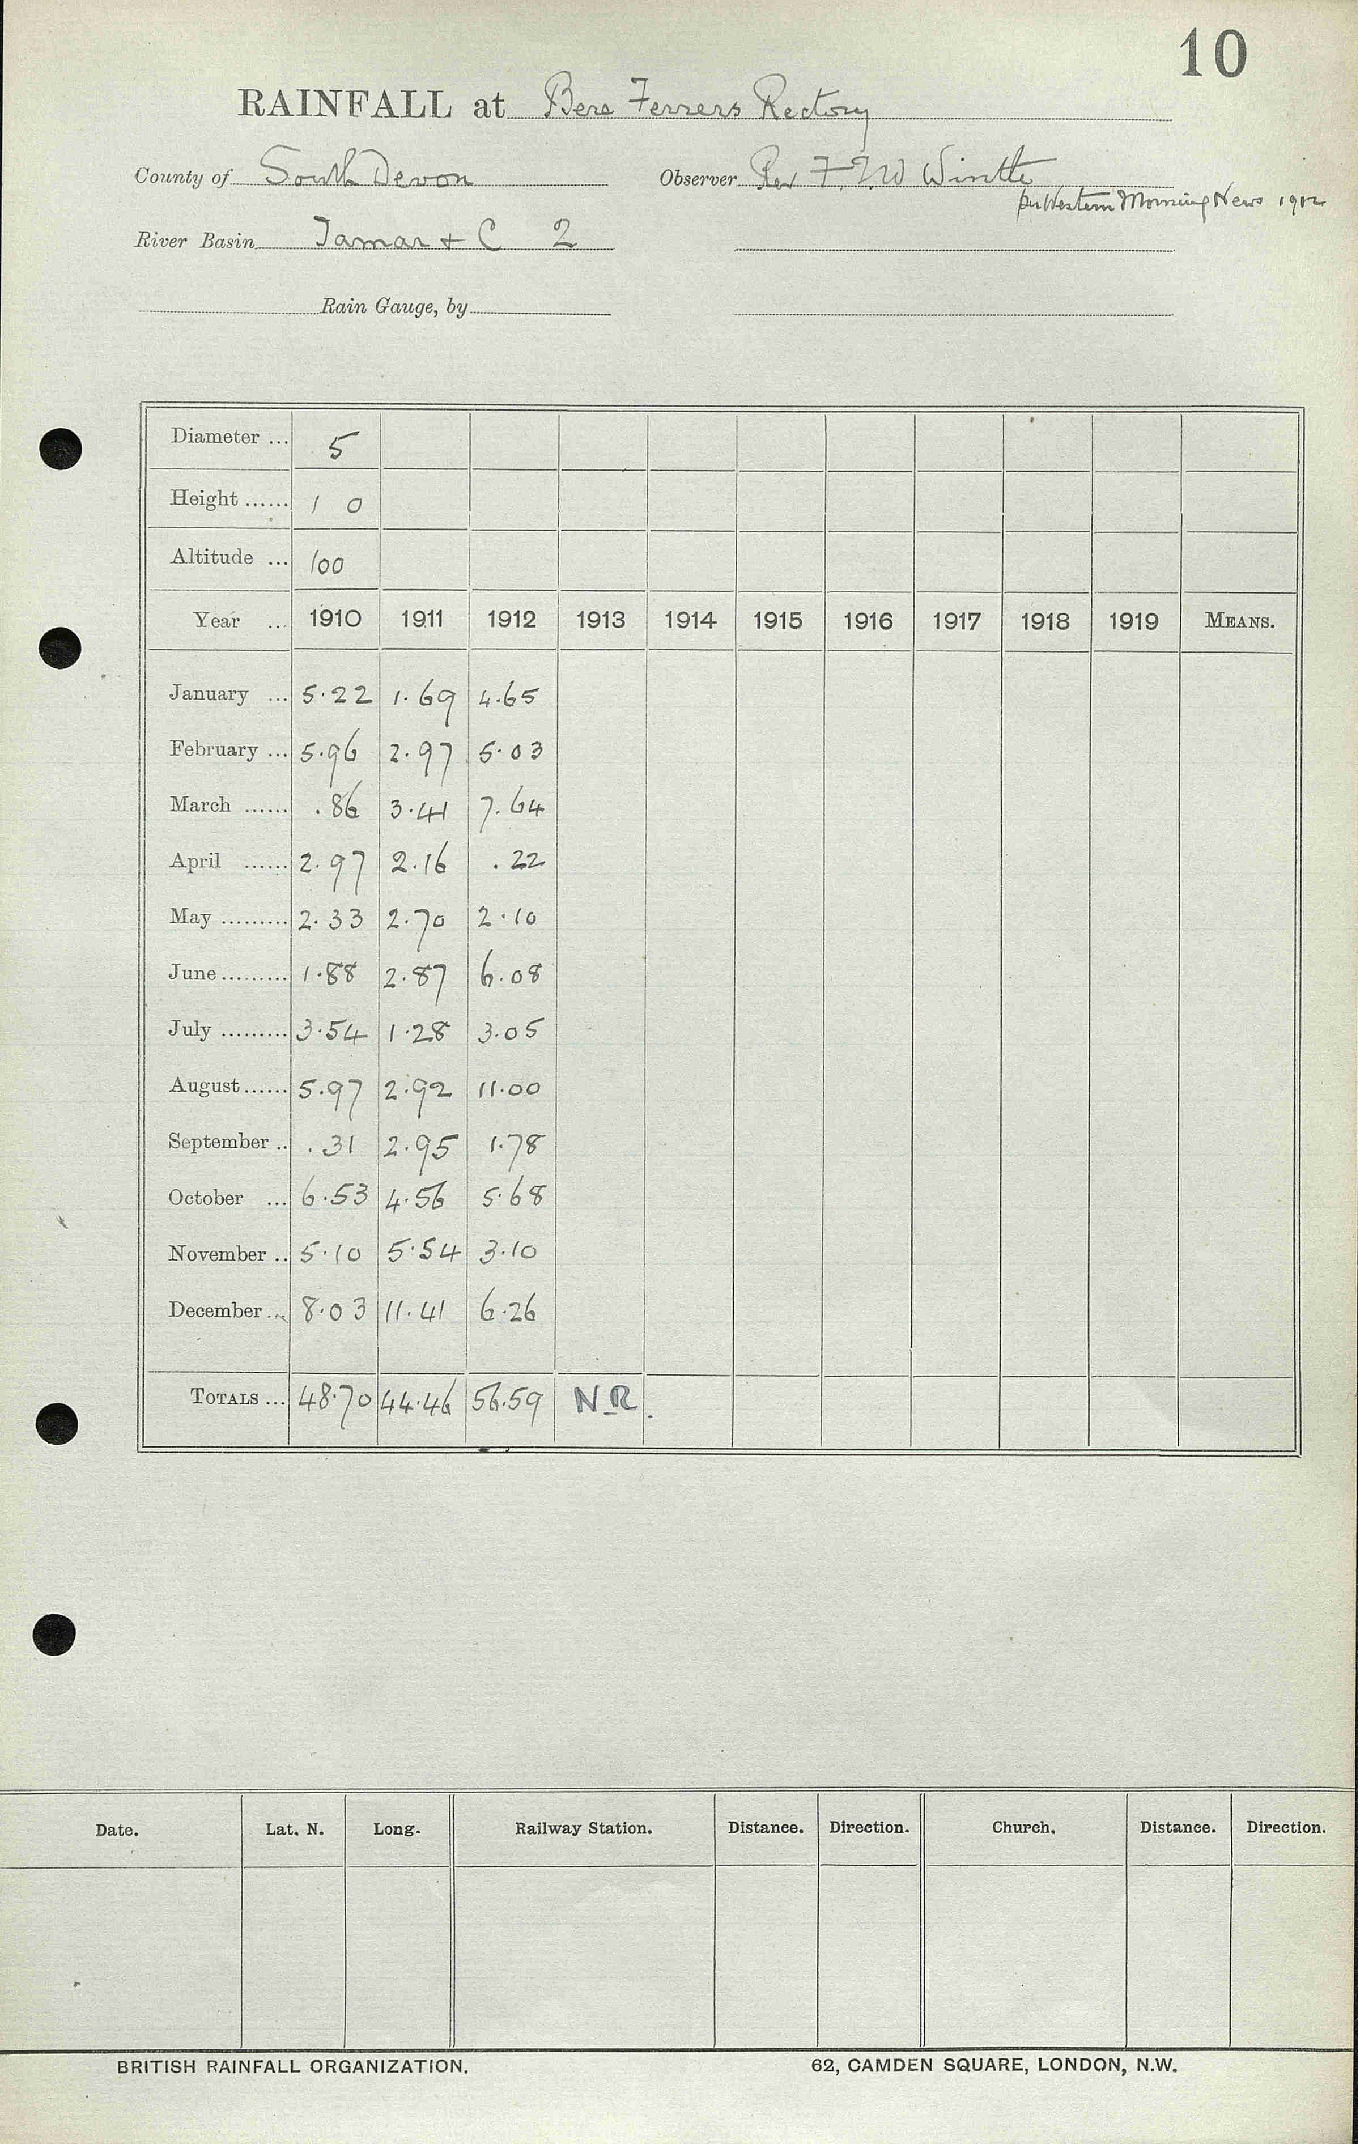 10
RAINFALL at Bere Ferrers Rectory
County of South Devon Observer Rev F. W Wintle
per Western Morning News 1912
River Basin Tamar & C 2
Rain Gauge, by
Diameter ... 5
Height ...... 1 0
Altitude ... 100
Year ... 1910 1911 1912 1913 1914 1915 1916 1917 1918 1919 MEANS.
January ... 5.22 1.69 4.65
February ... 5.96 2.97 5.03
March ...... .86 3.41 7.64
April ...... 2.97 2.16 .22
May ......... 2.33 2.70 2.10
June ......... 1.88 2.87 6.08
July ......... 3.54 1.28 3.05
August ...... 5.97 2.92 11.00
September .. .31 2.95 1.78
October ... 6.53 4.56 5.68
November .. 5.10 5.54 3.10
December ... 8.03 11.41 6.26
TOTALS ... 48.70 44.46 56.59 N.R.
Date. Lat. N. Long. Railway Station. Distance. Direction. Church. Distance. Direction.
BRITISH RAINFALL ORGANIZATION. 62, CAMDEN SQUARE, LONDON, N.W.